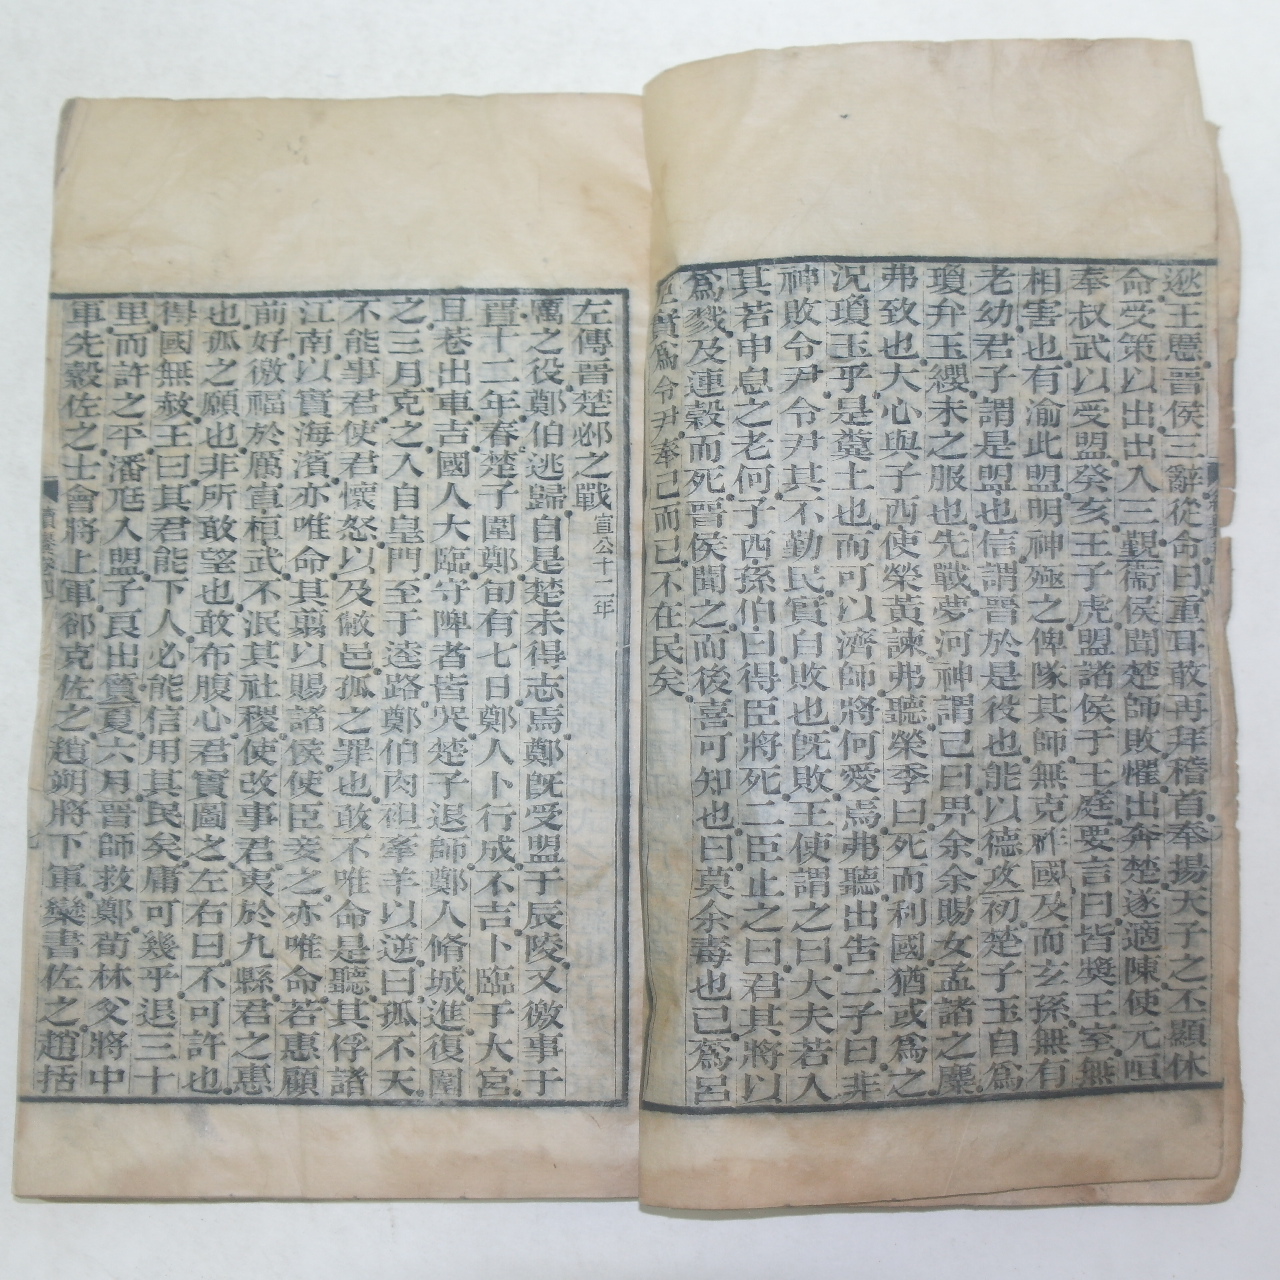 逖王慝晉侯三辭從命曰重耳敢再拜稽首奉揚天子之丕顯休
命受策以出出入三覲衞侯聞楚師敗懼出奔楚遂適陳使元咺
奉叔武以受盟癸亥王子虎盟諸侯于王庭要言曰皆獎王室無
相害也有渝此盟明神殛之俾隊其師無克祚國及而玄孫無有
老幼君子謂是盟也信謂晉於是役也能以德攻初楚子玉自爲
瓊弁玉纓未之服也先戰夢河神謂己曰畀余余賜女孟諸之麋
弗致也大心與子西使榮黃諫弗聽榮季曰死而利國猶或爲之
況瓊玉乎是糞土也而可以濟師將何愛焉弗聽出告二子曰非
神敗令尹令尹其不勤民實自敗也旣敗王使謂之曰大夫若入
其若申息之老何子西孫伯曰得臣將死二臣止之曰君其將以
爲戮及連穀而死晉侯聞之而後喜可知也曰莫余毒也已蒍呂
臣實爲令尹奉己而已不在民矣
左傳晉楚邲之戰 宣公十二年
厲之役鄭伯逃歸自是楚未得志焉鄭旣受盟于辰陵又徼事于
晉十二年春楚子圍鄭旬有七日鄭人卜行成不吉卜臨于大宮
且巷出車吉國人大臨守陴者皆哭楚子退師鄭人脩城進復圍
之三月克之入自皇門至于逵路鄭伯肉袒牽羊以逆曰孤不天
不能事君使君懷怒以及敝邑孤之罪也敢不唯命是聽其俘諸
江南以實海濱亦唯命其翦以賜諸侯使臣妾之亦唯命若惠顧
前好徼福於厲宣桓武不泯其社稷使改事君夷於九縣君之惠
也孤之願也非所敢望也敢布腹心君實圖之左右曰不可許也
得國無赦王曰其君能下人必能信用其民矣庸可幾乎退三十
里而許之平潘尫入盟子良出質夏六月晉師救鄭荀林父將中
軍先縠佐之士會將上軍郤克佐之趙朔將下軍欒書佐之趙括